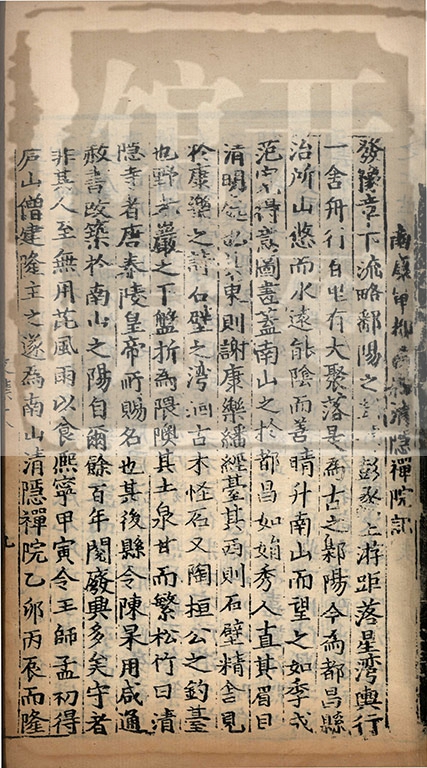 南康軍都昌縣清隱禪院記
發豫章下流略鄱陽之 彭蠡上游距落星灣輿行
一舍舟行自 有大聚落是為古之鄡陽今為都昌縣
治所山悠而水遠能陰而善晴升南山而望之如季成
范寬得意圖畫蓋南山之於都昌如娟秀人直其眉目
清明處也其東則謝康樂繙經臺其西則石壁精舍見
於康樂之詩石壁之灣洄古木怪石又陶桓公之釣臺
也野老巖之下盤折為隈隩其土泉甘而繁松竹曰清
隱寺者唐泰陵皇帝所賜名也其後縣令陳杲用咸通
赦書改築於南山之陽自爾餘百年閱廢興多矣守者
非其人至無用芘風雨以食熙寧甲寅令王師孟初得
庐山僧建隆主之遂為南山清隱禪院乙卯丙辰而隆
九